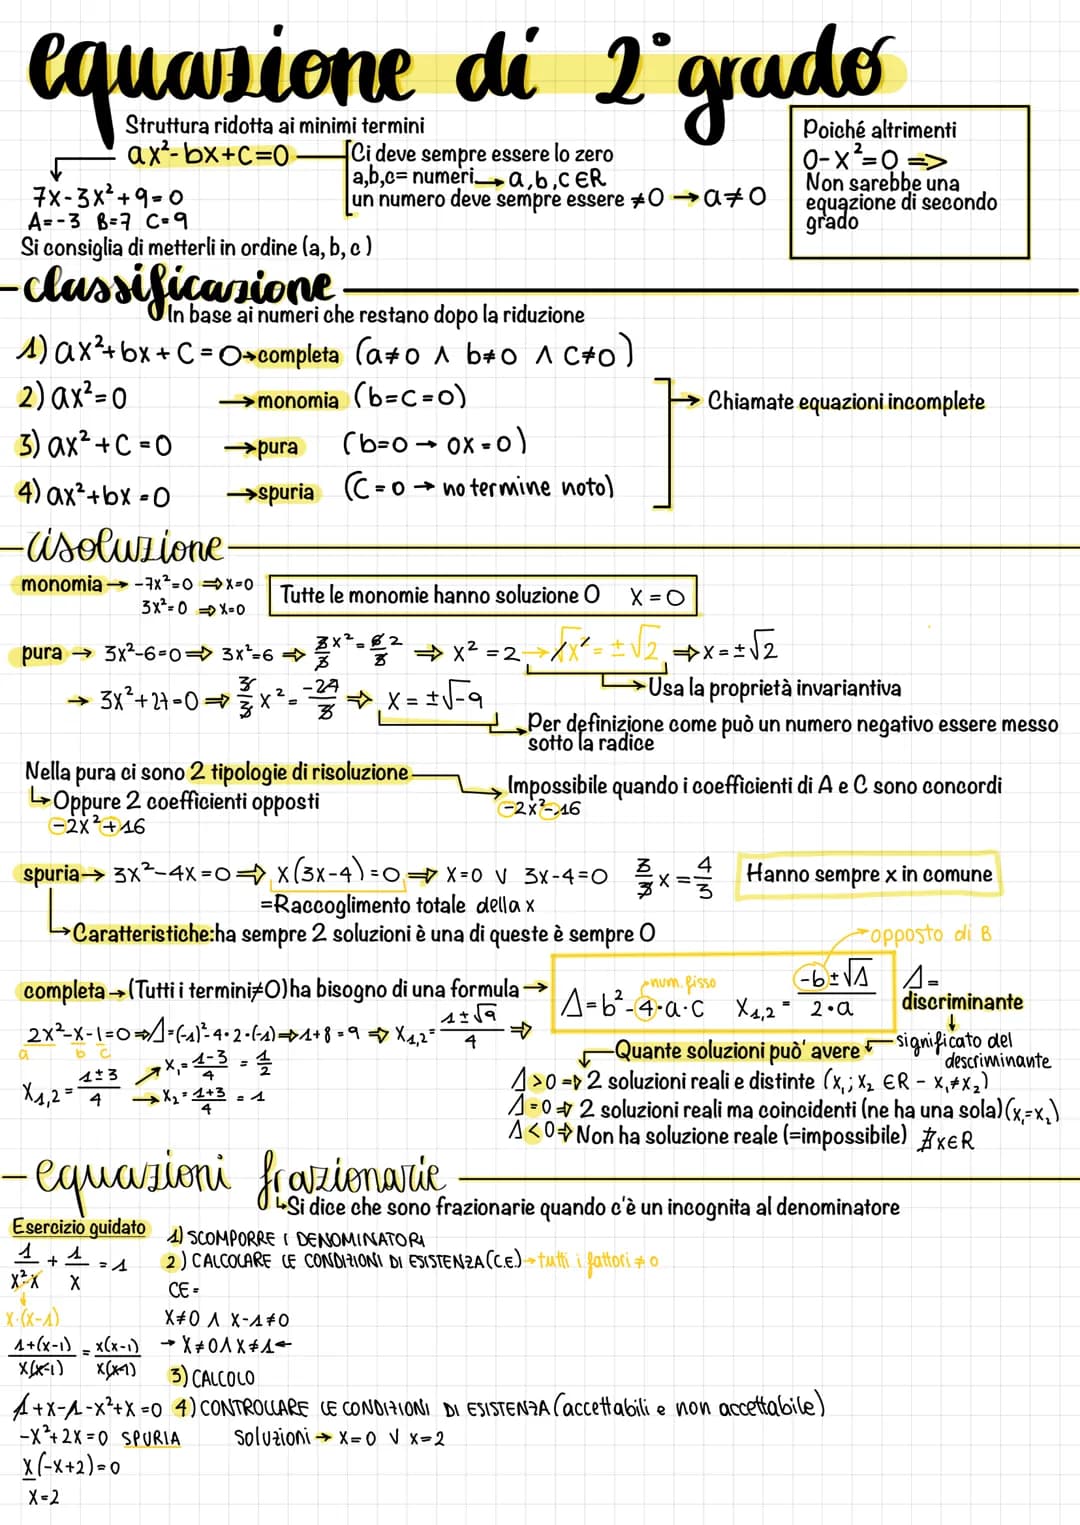 equazione di 2° grado
Struttura ridotta ai minimi termini
ax²-bx+c=0
Ci deve sempre essere lo zero
a,b,c= numeri → a,b,c ∈R
un numero deve sempre essere ≠0 → a≠0
Poiché altrimenti
0-x²=0 =>
Non sarebbe una
equazione di secondo
grado
7x-3x²+9=0
A=-3 B=7 C=9
Si consiglia di metterli in ordine (a, b, c)
-classificazione
In base ai numeri che restano dopo la riduzione
1) ax²+bx+c=0→completa (a≠0 ∧ b≠0 ∧ c≠0)
2) ax²=0 →monomia (b=c=0)
3) ax²+c=0 →pura (b=0 → 0x=0)
4) ax²+bx=0 →spuria (c=0 → no termine noto)
→ Chiamate equazioni incomplete
-risoluzione
monomia → -7x²=0 ⇒x=0
3x²=0 ⇒x=0
Tutte le monomie hanno soluzione 0 x=0
pura → 3x²-6=0⇒ 3x²=6 ⇒ 3/3x²=6/3 2 ⇒ x²=2→√x²=±√2 ⇒x=±√2
→Usa la proprietà invariantiva
→ 3x²+27=0⇒ 3/3 x²= -27/3 ⇒ x=±√-9
Per definizione come può un numero negativo essere messo
sotto la radice
Nella pura ci sono 2 tipologie di risoluzione
Impossibile quando i coefficienti di A e C sono concordi
-2x²-16
↳Oppure 2 coefficienti opposti
-2x²+16
spuria→ 3x²-4x=0⇒ x(3x-4)=0⇒ x=0 ∨ 3x-4=0 3/3 x=4/3
Hanno sempre x in comune
=Raccoglimento totale della x
↳Caratteristiche:ha sempre 2 soluzioni è una di queste è sempre 0
completa→(Tutti i termini≠0)ha bisogno di una formula→
opposto di B
num. fisso
Δ=b²-4·a·c x1,2= -b±√Δ/2·a
Δ=
discriminante
significato del
descriminante
2x²-x-1=0⇒Δ=(-1)²-4·2·(-1)⇒1+8=9 ⇒ x1,2= 1±√9/4 ⇒
a b c
x1,2= 1±3/4
x₁= 1-3/4 = 1/2
x₂= 1+3/4 = 1
Quante soluzioni può' avere
Δ>0 ⇒ 2 soluzioni reali e distinte (x₁;x₂ ∈R - x₁≠x₂)
Δ=0 ⇒ 2 soluzioni reali ma coincidenti (ne ha una sola)(x₁=x₂)
Δ<0⇒ Non ha soluzione reale (=impossibile) ∄x∈R
-equazioni frazionarie
↳Si dice che sono frazionarie quando c'è un incognita al denominatore
Esercizio guidato
1/x²-x + 1/x = 1
x·(x-1)
1+(x-1)/x(x-1) = x(x-1)/x(x-1)
1+x-1-x²+x=0
-x²+2x=0 SPURIA
x(-x+2)=0
x=2
1) SCOMPORRE I DENOMINATORI
2) CALCOLARE LE CONDIZIONI DI ESISTENZA(C.E.)→tutti i fattori ≠ 0
CE=
x≠0 ∧ x-1≠0
→ x≠0∧x≠1←
3) CALCOLO
4) CONTROLLARE LE CONDIZIONI DI ESISTENZA (accettabili e non accettabile)
Soluzioni → x=0 ∨ x=2